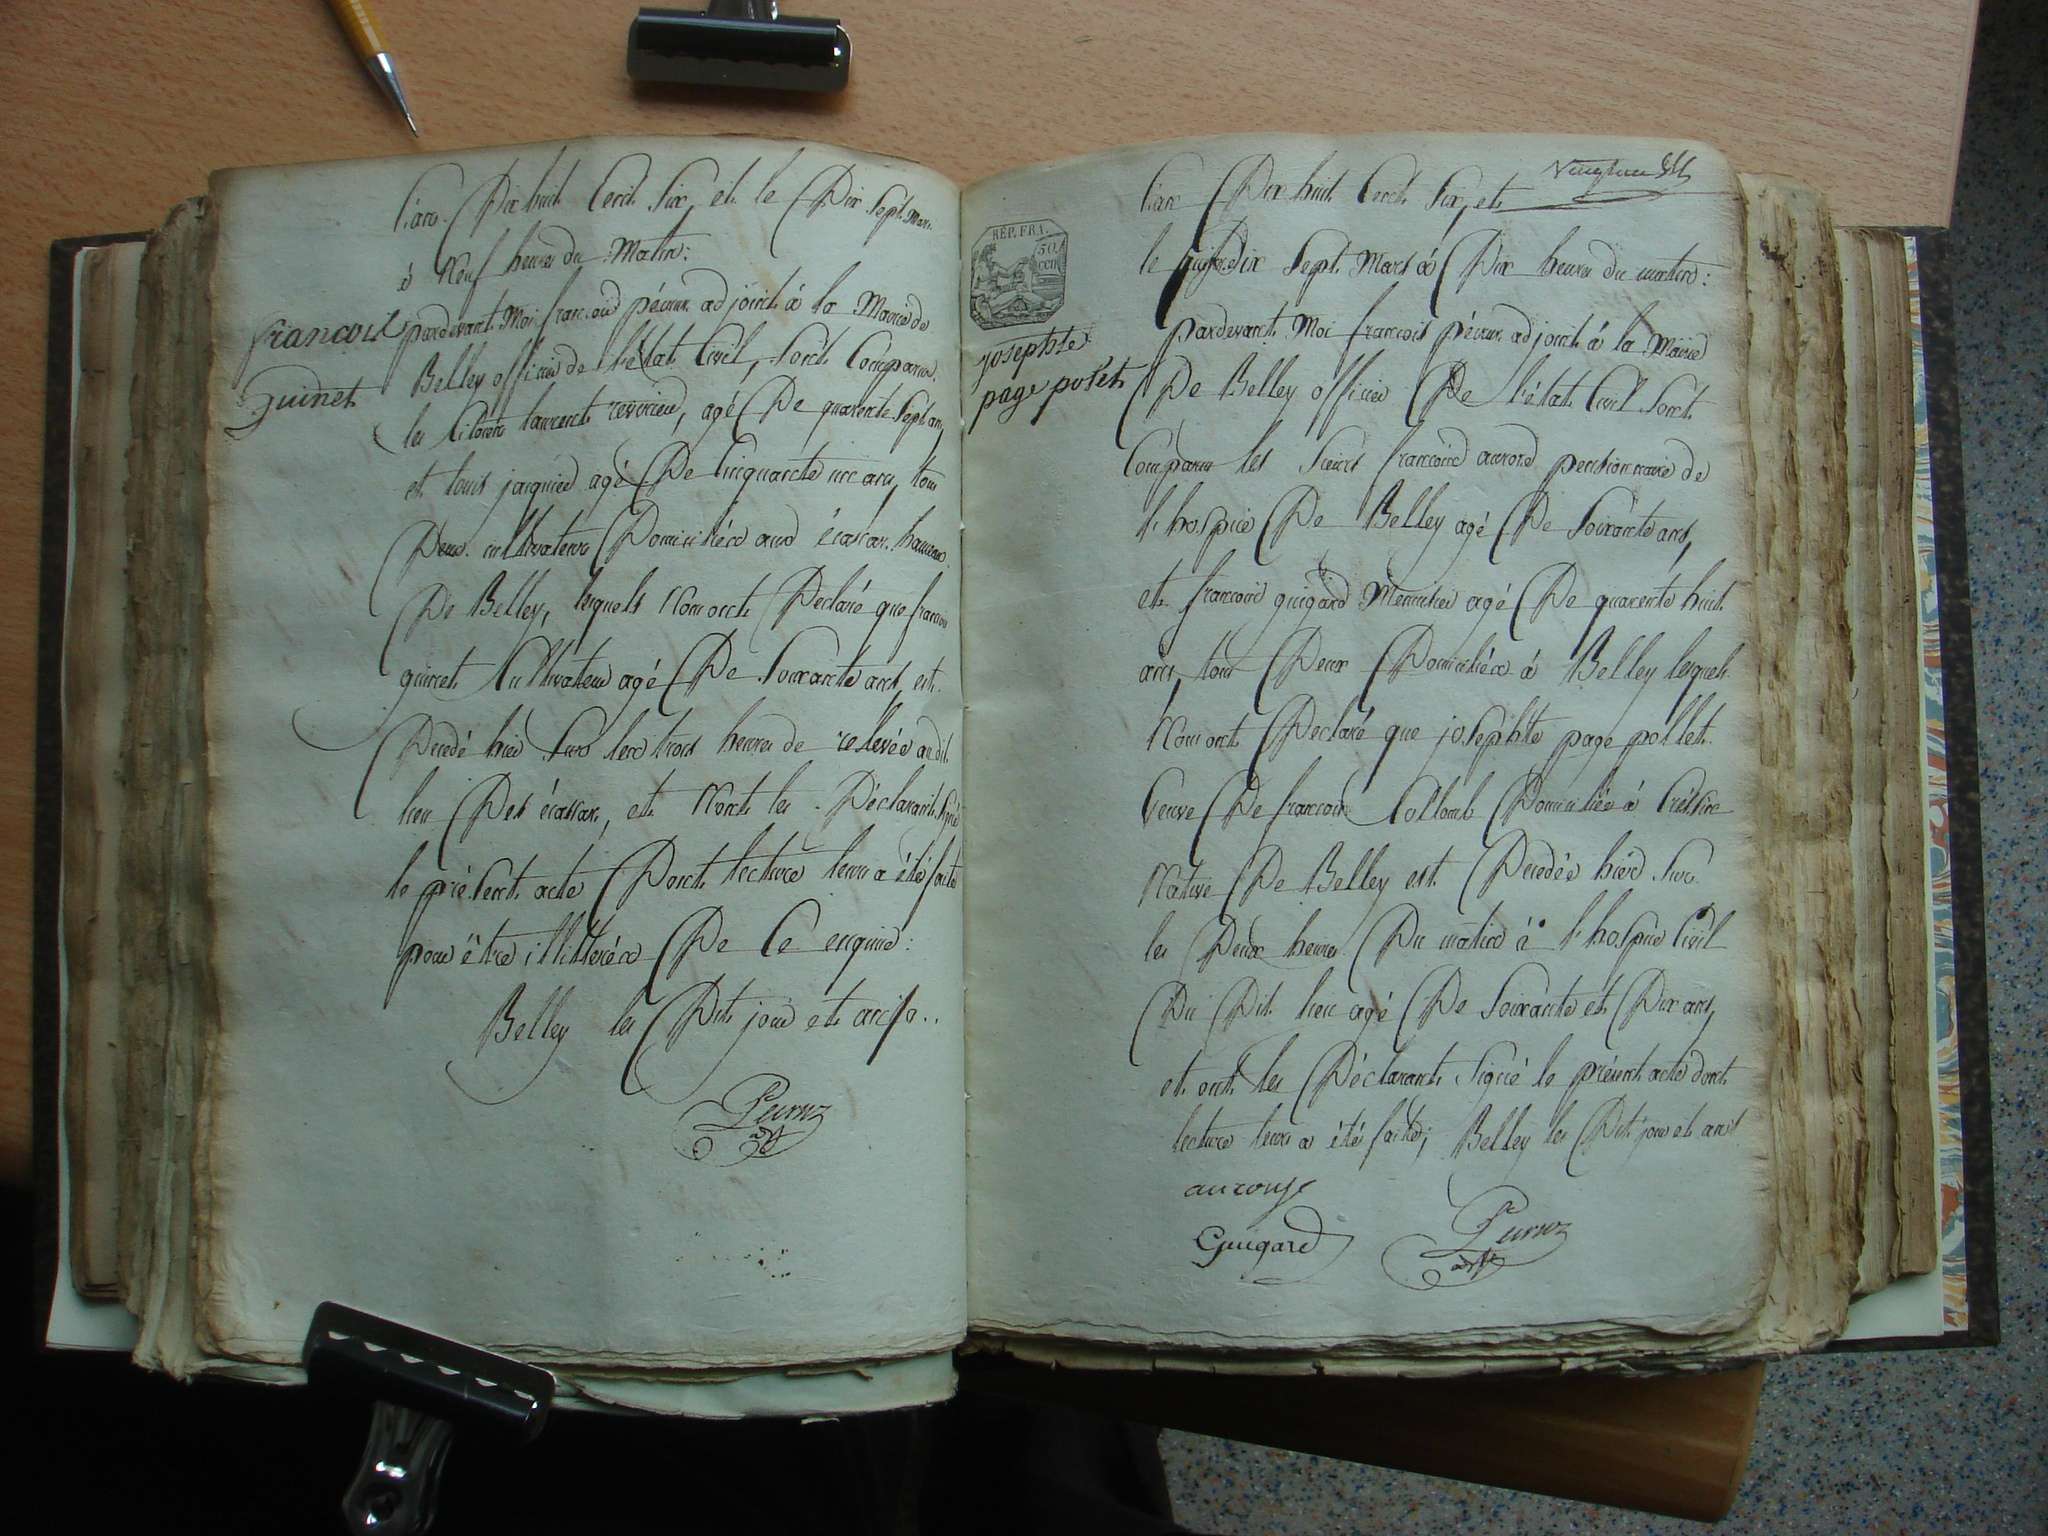 L'an Dix huit Cent Six, et le Dix Sept Mars
à Neuf heures du Matin:
pardevant Moi françois péwur adjoint à la Mairie de
françois
Guinet
Belley officier de l'état Civil, Sont Comparus
les Citoiens laurent, agé De quarente Sept ans,
et louis jaquier agé De Cinquante un ans, tous
Deux cultivateurs Domiciliés aux écassas hameau
De Belley, lesquels Nous ont Déclaré que françois
guinet Cultivateur agé De Soixante ans, est
Décédé hier Sur les trois heures de relevée au dit
lieu Des écassas, et N'ont les Déclarants Signé
le présent acte Dont lecture leur a été faite
pour être illittérés De Ce enquis:
Belley les Dit jour et an
REP. FRA.
50
cen
josephte
page polét
L'an Dix huit Cent Six, et
le Dix Sept Mars à Dix heures du matin:
pardevant Moi françois adjoint à la Mairie
De Belley officier De l'état Civil Sont
Comparus les Sieurs françois pensionnaire de
l'hospice De Belley agé De Soixante ans,
et françois guigard Menuisier agé De quarente huit
ans, tous Deux Domiciliés à Belley lesquels
Nous ont Déclaré que josephte page pollet
Veuve De françois Collomb Domiciliée à
Native De Belley est Décédée hier Sur
les Deux heures Du matin à l'hospice Civil
Du Dit lieu agé De Soixante et Dix ans,
et ont les Déclarants Signé le présent acte dont
lecture leur a été faite; Belley les Dit jour et an
Guigard